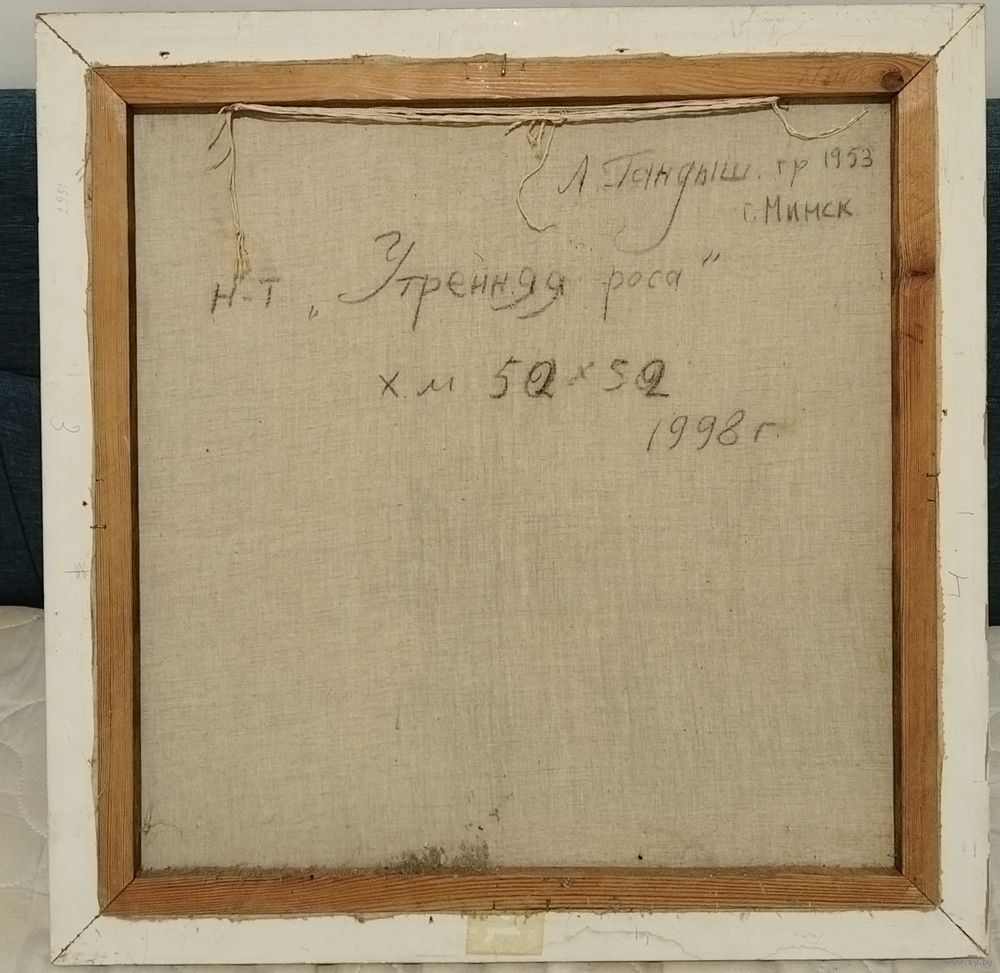 Л. Гандыш. гр 1953
г. Минск
н-т „Утренняя роса"
х. м 52 х 52
1998 г.
www.ay.by